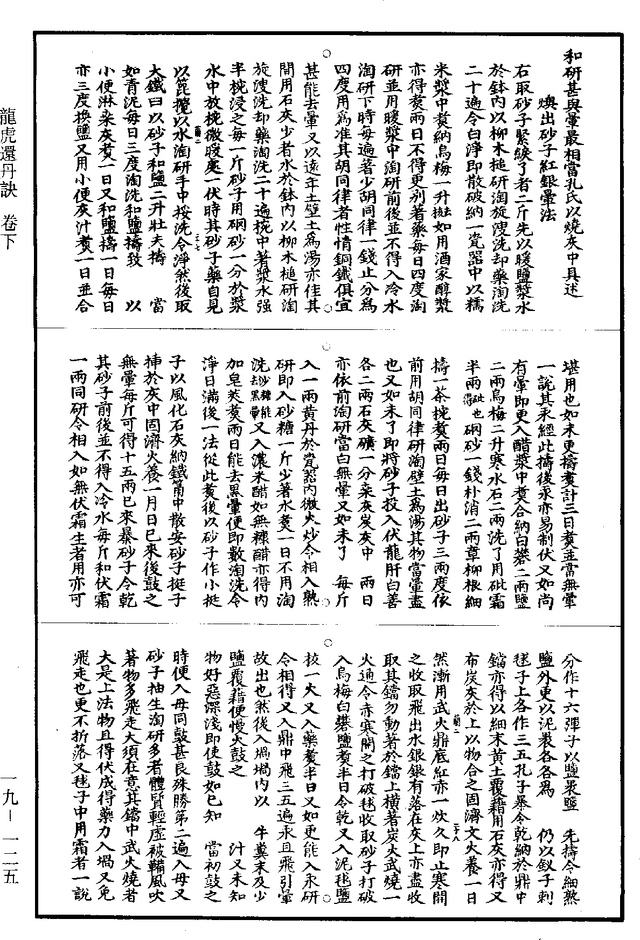 和研甚與暈最相當孔氏以燒灰中具述
煥出砂子紅銀暈法
右取砂子緊緩了者二斤先以暖鹽漿水
於鉢內以柳木槌研淘旋溲洗却藥淘洗
二十遍令白淨即散破納一瓷器中以糯
米漿中煑納烏梅一升搥如用酒家醇漿
亦得煑兩日不得更別著藥每日四度淘
研並用暖漿中淘研前後並不得入冷水
淘研下時每遍著少胡同律一錢止分為
四度用為准其胡同律者性情銅鐵俱宜
甚能去暈又以遠年土壁土為湯亦佳其
間用石灰少者水於鉢內以柳木槌研淘
旋溲洗却藥淘洗二十遍捥中著漿水强
半捥浸之每一斤砂子用硇砂一分於漿
水中放捥微暖處一伏時其砂子藥自見
以箆攪以水淘研手中挼洗令淨然後取
大鐵臼以砂子和鹽二升壯夫擣 當
如青泥每日三度淘洗和鹽擣致 以
小便淋染灰煑一日又和鹽擣一日每日
亦三度換鹽又用小便灰汁煑一日並合
堪用也如未更擣煑計三日煑並當無暈
一說其汞經此擣後汞亦易制伏又如尚
有暈即更入醋漿中煑合納白礬二兩鹽
二兩烏梅二升寒水石二兩洗了用砒霜
半兩硇砂一錢朴消二兩章柳根細
擣一茶捥煑兩日每日出砂子三兩度依
前用胡同律研淘壁土為湯其物當暈盡
也又如未了即將砂子投入伏龍肝白善
各二兩石灰礦一分桑灰炭灰中 兩日
亦依前淘研當白無暈又如未了 每斤
入一兩黃丹於瓷器內微火炒令相入熟
研即入砂糖一斤少著水煑一日不用淘
洗又入濃米醋如無糠醋亦得內
加皂莢煑兩日能去黑暈便即數淘洗令
淨日滿後一法從此煑後以砂子作小挺
子以風化石灰納鐵筩中散安砂子挺子
揷於灰中固濟火養一月日已來後鼓之
無暈每斤可得十五兩已來暴砂子令乾
其砂子前後並不得入冷水每斤和伏霜
一兩同研令相入如無伏霜生者用亦可
分作十六彈子以鹽裹鹽 先擣令細熟
鹽外更以泥裹各各為 仍以釵子刺
毬子上各作三五孔子暴令乾納於鼎中
鐺亦得以細末黃土覆藉用石灰亦得又
布炭灰於上以物合之固濟文火養一日
然漸用武火鼎底紅亦一炊久即止寒開
之收取飛出水銀銀有落在灰上亦盡收
取其鐺勿動著於鐺上橫著炭火武燒一
火通令赤寒開之打破毬收取砂子打破
入烏梅白礬鹽煑半日令乾又入泥毬鹽
按一大又入藥煑半日又如更能入汞研
令相得又入鼎中飛三五遍汞且飛引暈
故出也然後入堝堝內以 牛糞末及少
鹽覆藉便慢火鼓之 汁又未知
物好惡深淺即使鼓如已知 當初鼓之
時便入母同鼓甚良殊勝第二遍入母又
砂子抽生淘研多者體質輕虛被鞴風吹
著物多飛走大須在意其鐺中武火燒者
大是上法物且得伏成得藥力入堝又免
飛走也更不折落又毬子中用霜者一說
龍虎還丹訣 卷下
一九－一二五